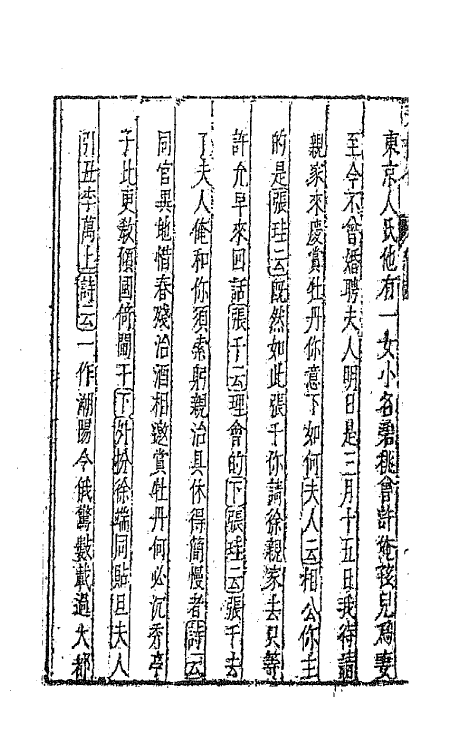 東京人氏他有一女小名碧桃曾許俺孩兒爲妻
至今不曾婚聘夫人明日是三月十五日我待請
親家來慶賞牡丹你意下如何夫人云相公你主
的是張珪云旣然如此張千你請徐親家去只等
許允早來回話張千云理會的下張珪云張千去
了夫人俺和你須索躬親治具休得簡慢者詩云
同官異地惜春殘治酒相邀賞牡丹何必沉香亭
子北更敎傾國倚闌干下外扮徐端同貼旦夫人
引丑李萬上詩云一作潮陽令俄驚數載過大都